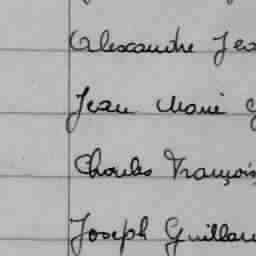 Alexandre Jea
Jean Marie G
Charles François
Joseph Guillau